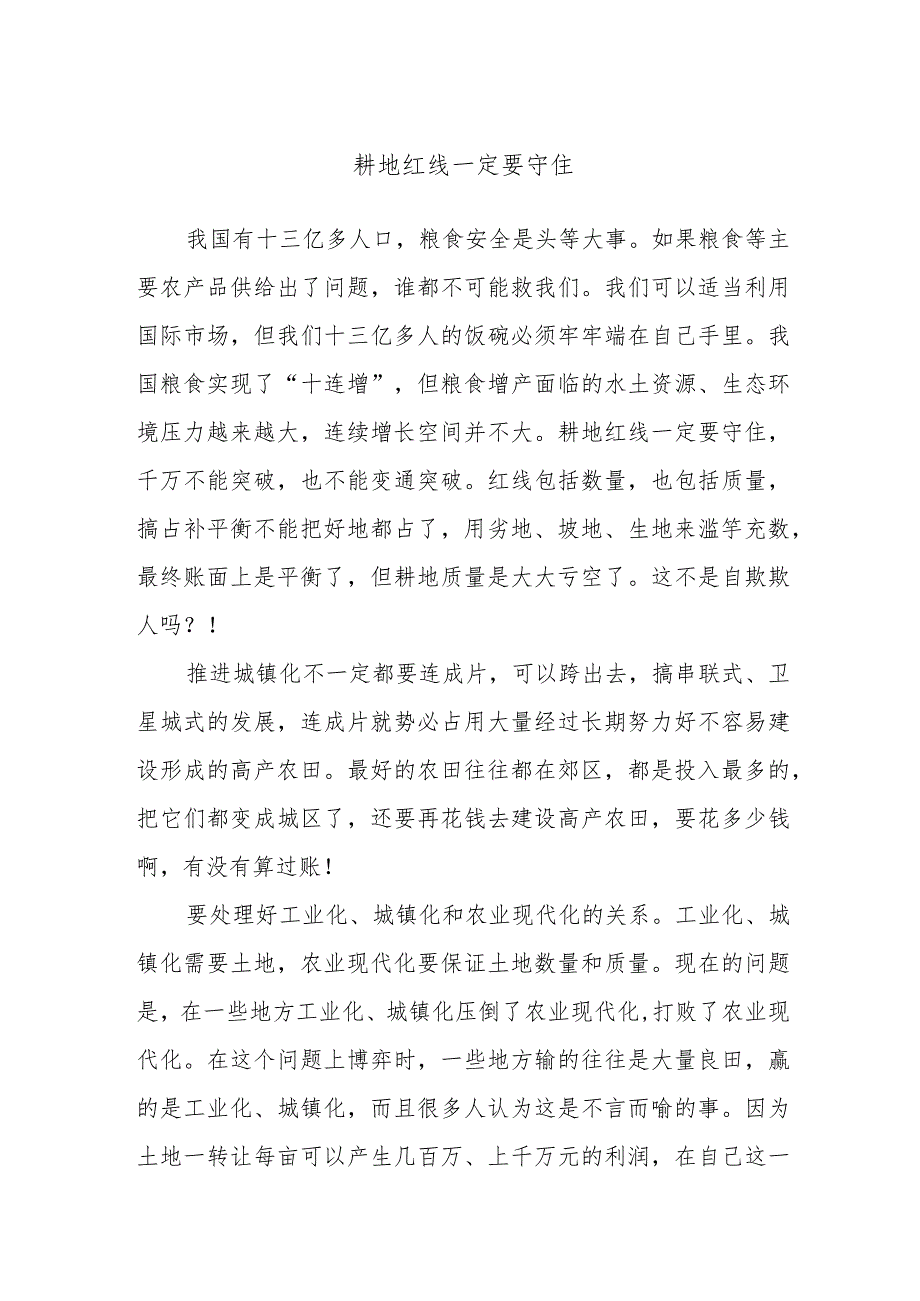 耕地红线一定要守住
我国有十三亿多人口，粮食安全是头等大事。如果粮食等主
要农产品供给出了问题，谁都不可能救我们。我们可以适当利用
国际市场，但我们十三亿多人的饭碗必须牢牢端在自己手里。我
国粮食实现了“十连增”，但粮食增产面临的水土资源、生态环
境压力越来越大，连续增长空间并不大。耕地红线一定要守住，
千万不能突破，也不能变通突破。红线包括数量，也包括质量，
搞占补平衡不能把好地都占了，用劣地、坡地、生地来滥竽充数，
最终账面上是平衡了，但耕地质量是大大亏空了。这不是自欺欺
人吗？！
推进城镇化不一定都要连成片，可以跨出去，搞串联式、卫
星城式的发展，连成片就势必占用大量经过长期努力好不容易建
设形成的高产农田。最好的农田往往都在郊区，都是投入最多的，
把它们都变成城区了，还要再花钱去建设高产农田，要花多少钱
啊，有没有算过账！
要处理好工业化、城镇化和农业现代化的关系。工业化、城
镇化需要土地，农业现代化要保证土地数量和质量。现在的问题
是，在一些地方工业化、城镇化压倒了农业现代化,打败了农业现
代化。在这个问题上博弈时，一些地方输的往往是大量良田，赢
的是工业化、城镇化，而且很多人认为这是不言而喻的事。因为
土地一转让每亩可以产生几百万、上千万元的利润，在自己这一